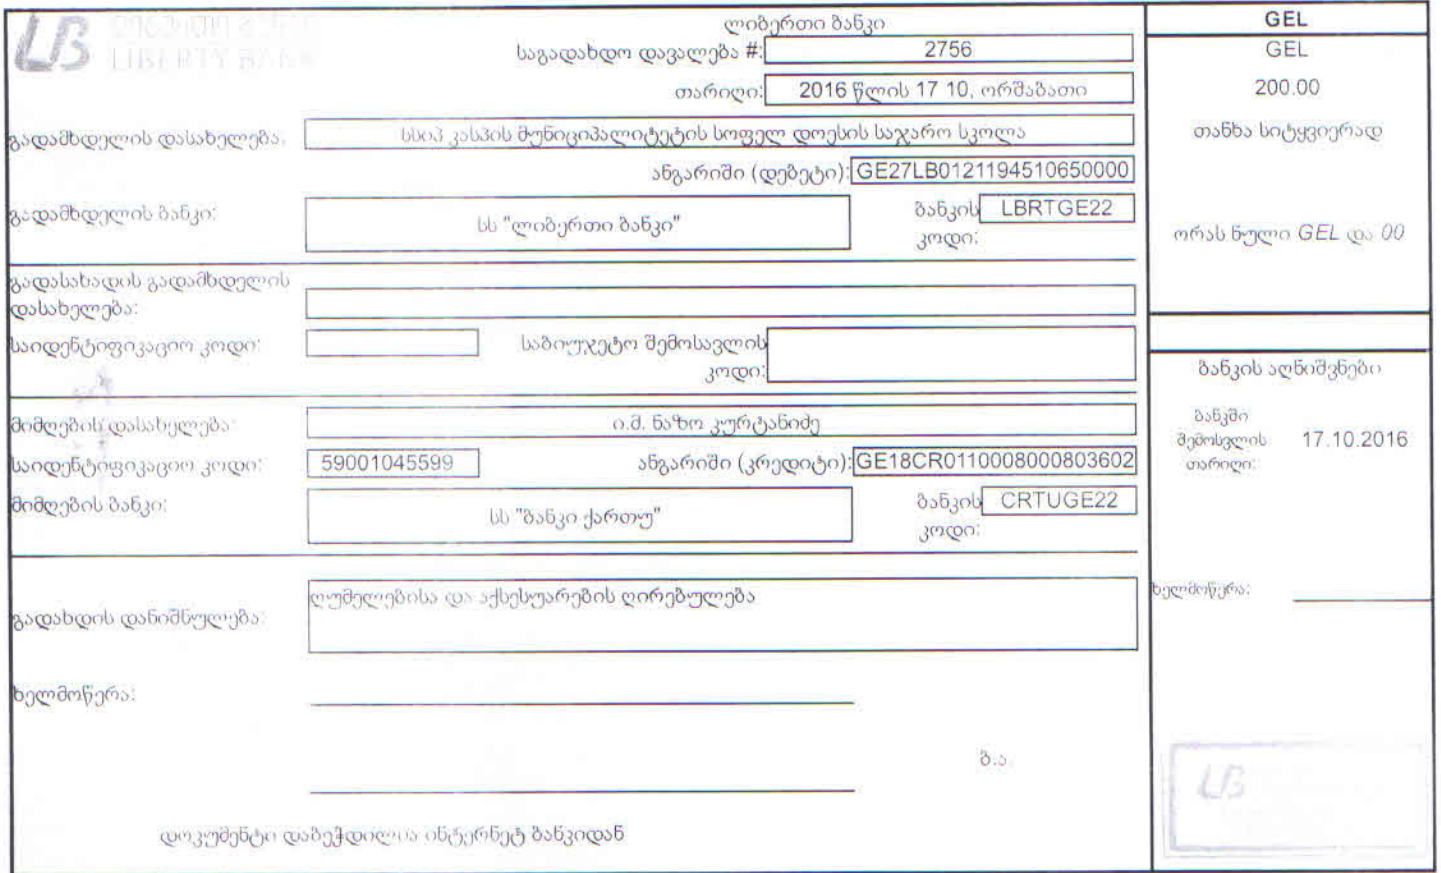 LB ლიბერთი ბანკი
LIBERTY BANK
ლიბერთი ბანკი
საგადახდო დავალება #: 2756
თარიღი: 2016 წლის 17 10, ორშაბათი
გადამხდელის დასახელება: სსიპ კასპის მუნიციპალიტეტის სოფელ დოესის საჯარო სკოლა
ანგარიში (დებეტი): GE27LB0121194510650000
გადამხდელის ბანკი: სს "ლიბერთი ბანკი" ბანკის კოდი: LBRTGE22
გადასახადის გადამხდელის
დასახელება:
საიდენტიფიკაციო კოდი: საბიუჯეტო შემოსავლის
კოდი:
მიმღების დასახელება: ი.მ. ნაზო კურტანიძე
საიდენტიფიკაციო კოდი: 59001045599 ანგარიში (კრედიტი): GE18CR0110008000803602
მიმღების ბანკი: სს "ბანკი ქართუ" ბანკის კოდი: CRTUGE22
გადახდის დანიშნულება: ღუმელებისა და აქსესუარების ღირებულება
ხელმოწერა:
ბ.ა.
დოკუმენტი დაბეჭდილია ინტერნეტ ბანკიდან
GEL
GEL
200.00
თანხა სიტყვიერად
ორას ნული GEL და 00
ბანკის აღნიშვნები
ბანკში
შემოსვლის 17.10.2016
თარიღი:
ხელმოწერა:
LB